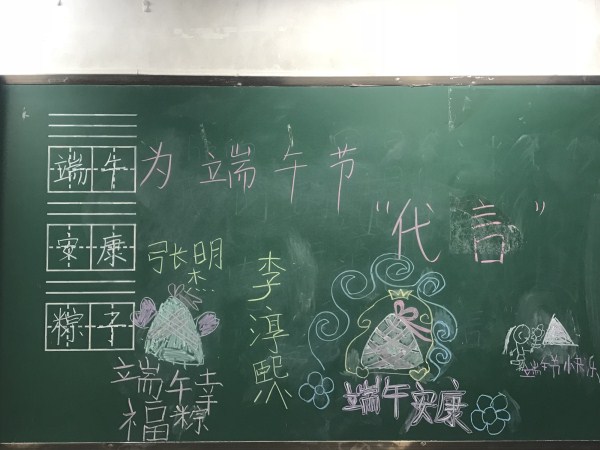 端午
安康
粽子
为端午节
“代言”
张明杰
李淳熙
端午幸
福粽
端午安康
端午节快乐